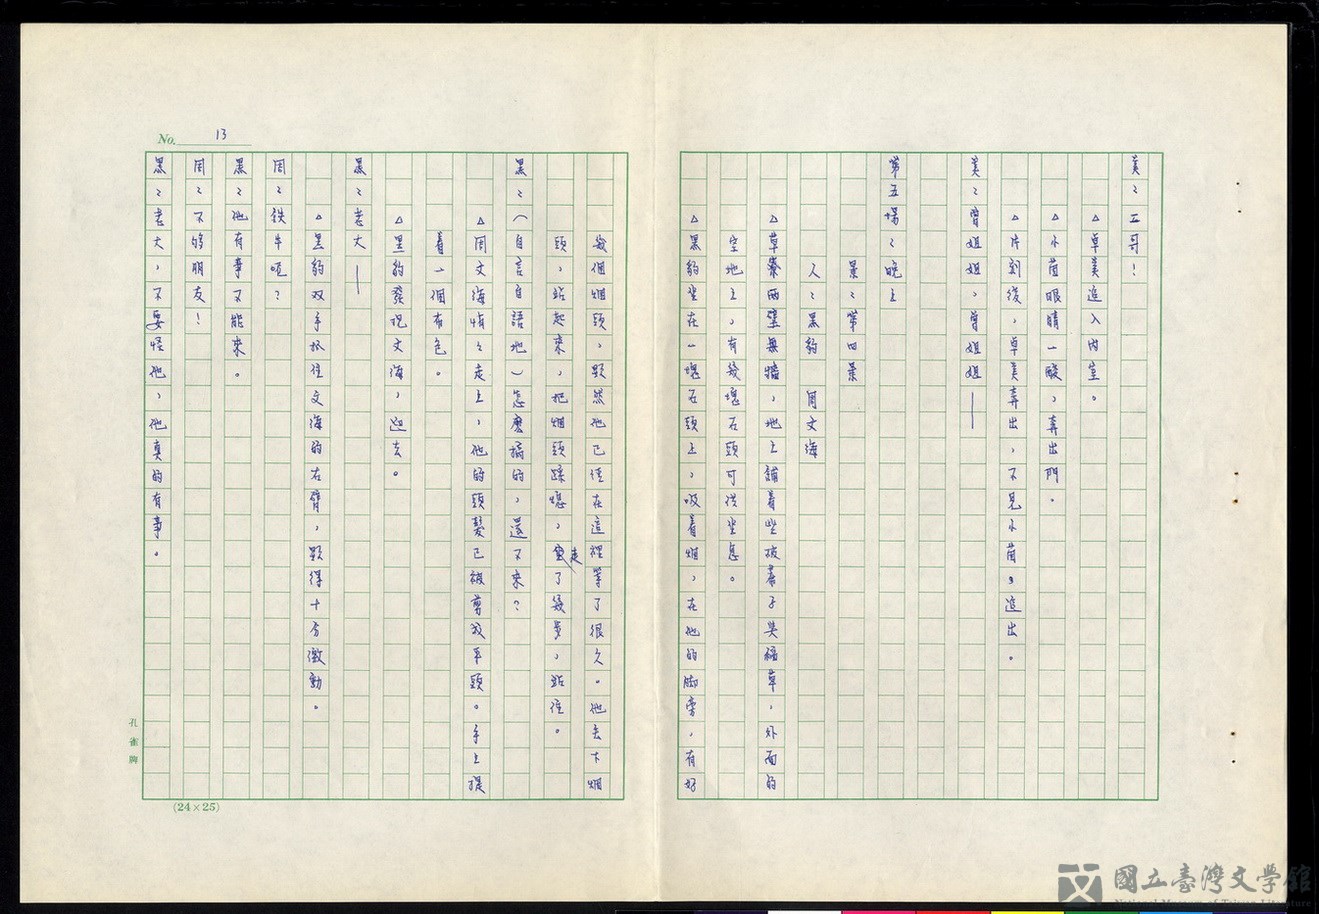 No. 13
美:二哥!
△卓美追入內室。
△小茵眼睛一酸,奔出門。
△片刻後,卓美奔出,不見小茵,追出。
美:曾姐姐,曾姐姐——
第五場:晚上
景:第四景
人:黑豹 周文海
△草寮兩壁無牆,地上舖着些破蓆子與稻草,外面的
空地上,有幾塊石頭可供坐息。
△黑豹坐在一塊石頭上,吸着烟,在他的脚旁,有好
幾個烟頭,顯然他已經在這裡等了很久。他丟下烟
頭,站起來,把烟頭踩熄,走了幾步,站住。
黑:(自言自語地)怎麽搞的,還不來?
△周文海悄悄走上,他的頭髮已被剪成平頭。手上提
着一個布包。
△黑豹發現文海,迎去。
黑:老大——
△黑豹双手抓住文海的右臂,顯得十分激動。
周:鉄牛呢?
黑:他有事不能來。
周:不够朋友!
黑:老大,不要怪他,他真的有事。
孔雀牌
(24×25)
國立臺灣文學館
National Museum of Taiwan Literature